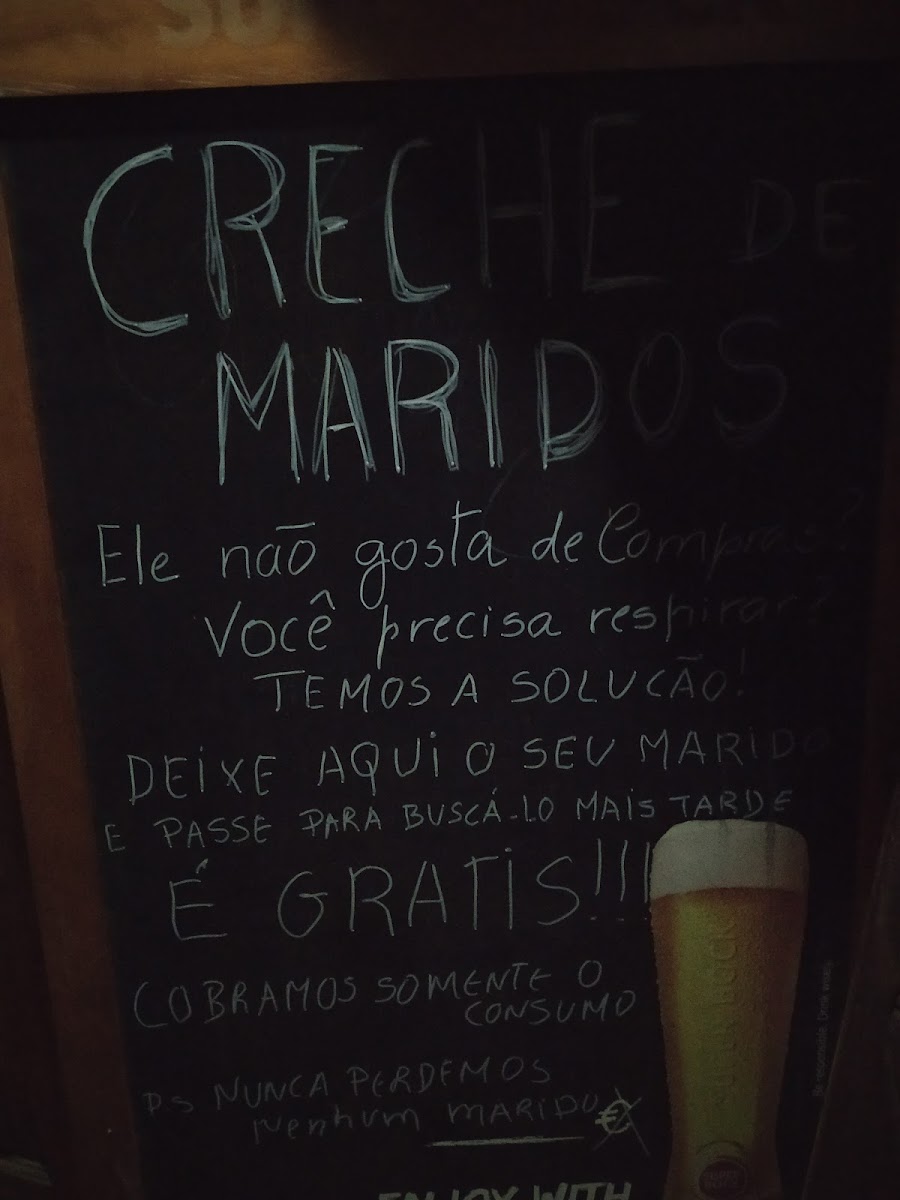 CRECHE DE
MARIDOS
Ele não gosta de Compras?
Você precisa respirar?
TEMOS A SOLUCÃO!
DEIXE AQUI O SEU MARIDO
E PASSE PARA BUSCÁ-LO MAIS TARDE
É GRATIS!!!
COBRAMOS SOMENTE O
CONSUMO
PS NUNCA PERDEMOS
Nenhum MARIDO
€
SUPER BOCK
Be responsible. Drink wisely.
SUPER
BOCK
ENJOY WITH